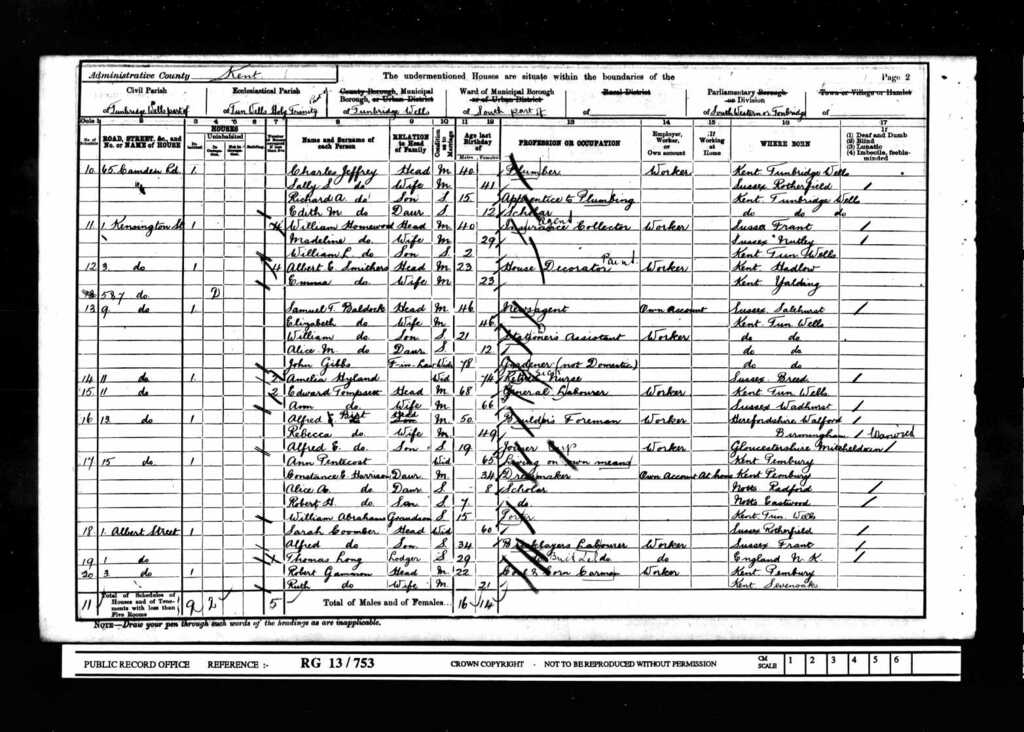 Administrative County Kent The undermentioned Houses are situate within the boundaries of the Page 2
Civil Parish Ecclesiastical Parish County Borough, Municipal Borough, or Urban District Ward of Municipal Borough or of Urban District Rural District Parliamentary Borough or Division Town or Village or Hamlet
of Tunbridge Wells part of of Tun Wells Holy Trinity of Tunbridge Wells of South part of of of South Western or Tonbridge of
ROAD, STREET, &c., and No. or NAME of HOUSE HOUSES Name and Surname of each Person RELATION to Head of Family Age last Birthday of PROFESSION OR OCCUPATION Employer, Worker, or Own account If Working at Home WHERE BORN If (1) Deaf and Dumb (2) Blind (3) Lunatic (4) Imbecile, feeble-minded
10 65 Camden Rd. 1 Charles Jeffrey Head M 40 Plumber Worker Kent Tunbridge Wells
Sally S do Wife M 41 Sussex Rotherfield
Richard A do Son S 15 Apprentice to Plumbing Kent Tunbridge Wells
Edith M do Daur S 12 Scholar do do do
11 1 Kensington St 1 4 William Homewood Head M 40 Insurance Agent Collector Worker Sussex Frant
Madeline do Wife M 29 Sussex Nutley
William L. do Son S 2 Kent Tun Wells
12 3 do 1 4 Albert E Smithers Head M 23 House Decorator Paint Worker Kent Hadlow
Emma do Wife M 23 Kent Yalding
5 & 7 do 2
13 9 do 1 Samuel T. Baldock Head M 46 Newsagent Own Account Sussex Salehurst
Elizabeth do Wife M 46 Kent Tun Wells
William do Son S 21 Stationers Assistant Worker do do
Alice M. do Daur S 12 do do
John Gibbs F-in-Law Wid 78 Gardener (not Domestic) do do
14 11 do 1 2 Amelia Hyland Wid 74 Retired Sick Nurse Sussex Breed
15 11 do 2 Edward Tompsett Head M 68 General Labourer Worker Kent Tun Wells
Ann do Wife M 66 Sussex Wadhurst
16 13 do 1 Alfred Head M 50 Builder's Foreman Worker Herefordshire Walford
Rebecca do Wife M 49 Birmingham Warwick
Alfred E. do Son S 19 Joiner Worker Gloucestershire
17 15 do 1 Ann Pentecost Wid 65 Living on own means Kent Pembury
Constance E Harrison Daur M 34 Dressmaker Own Account At home Kent Pembury
Alice A. do Daur S 8 Scholar Notts Radford
Robert H. do Son S 7 do Notts Eastwood
William Abrahams Grandson S 15 Porter Kent Tun Wells
18 1 Albert Street 1 Sarah Coomber Head Wid 60 Sussex Rotherfield
Alfred do Son S 34 Bricklayers Labourer Worker Sussex Frant
19 1 do Thomas Long Lodger S 29 do do England N. K.
20 3 do 1 Robert Gammon Head M 22 Coal & Corn Carman Worker Kent Pembury
Ruth do Wife M 21 Kent Sevenoak
11 Total of Schedules of Houses and of Tenements with less than Five Rooms 9 2 5 Total of Males and of Females... 16 14
NOTE—Draw your pen through such words of the headings as are inapplicable.
PUBLIC RECORD OFFICE REFERENCE :- RG 13/753 CROWN COPYRIGHT - NOT TO BE REPRODUCED WITHOUT PERMISSION CM SCALE 1 2 3 4 5 6